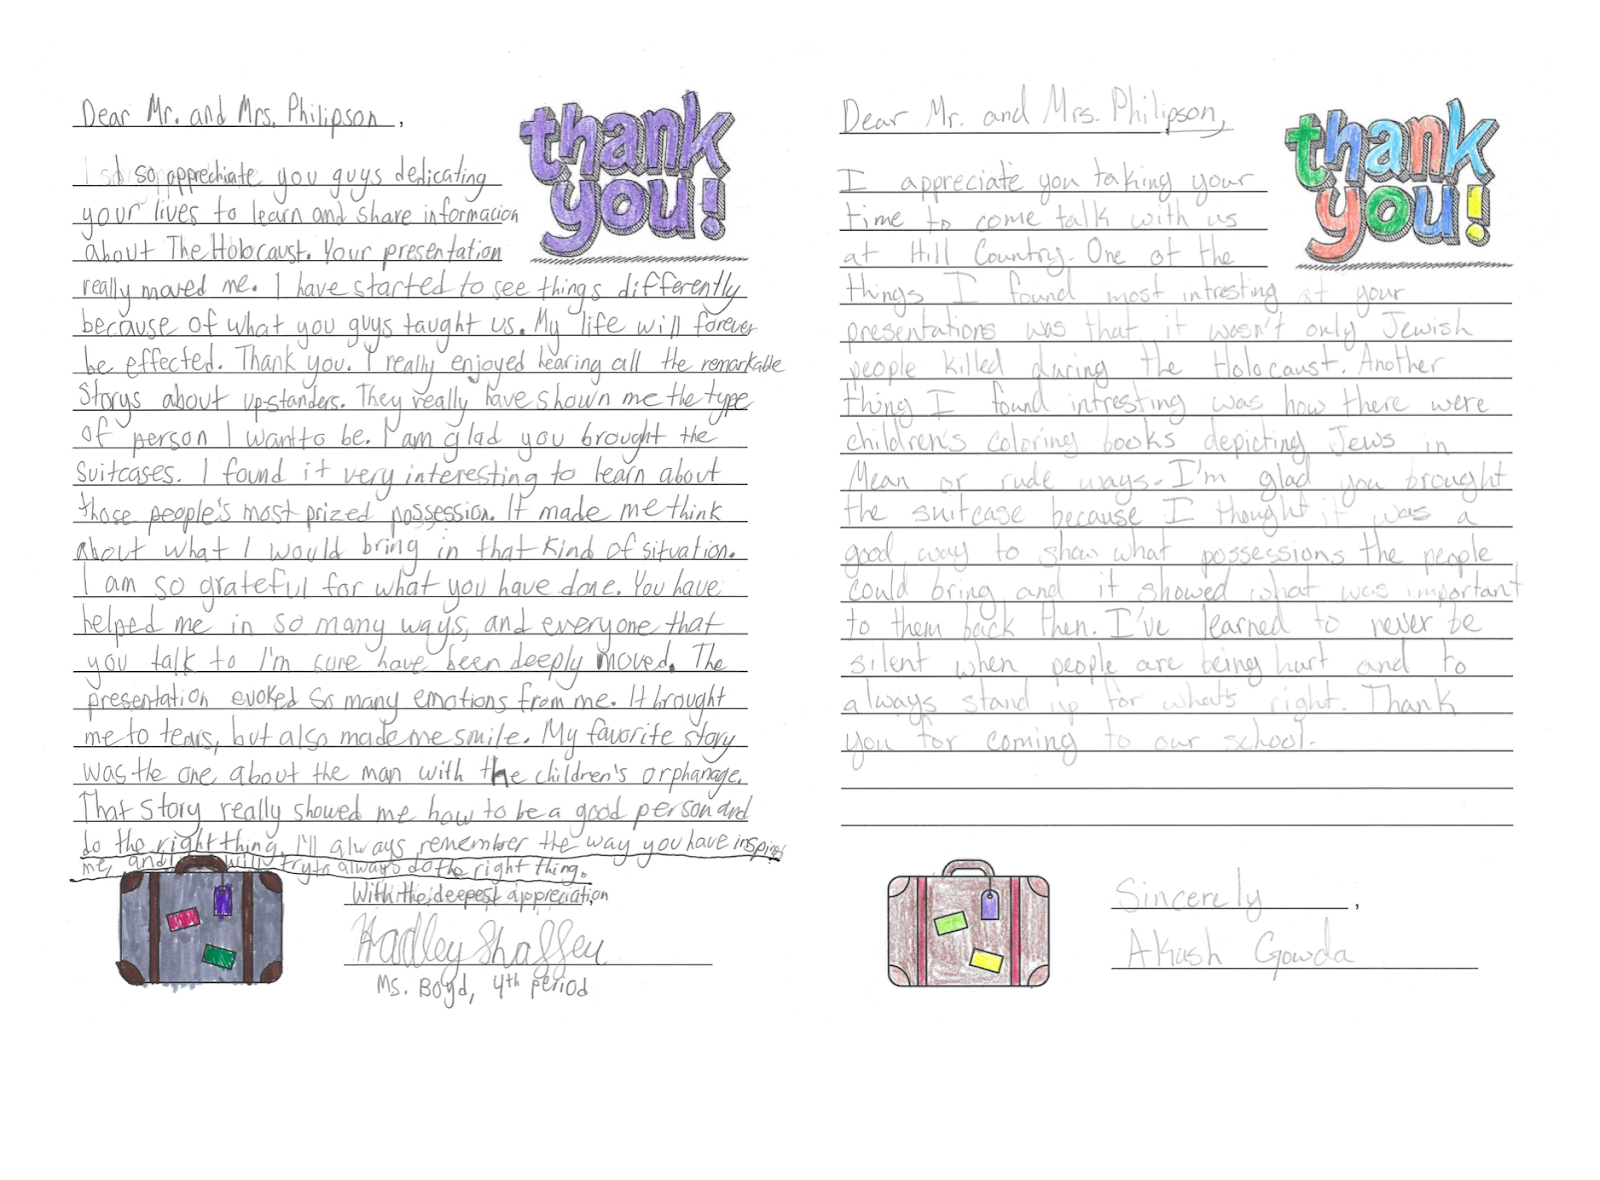 Dear Mr. and Mrs. Philipson,
thank
you!
I so so apprechiate you guys dedicating
your lives to learn and share informacion
about The Holocaust. Your presentation
really moved me. I have started to see things differently
because of what you guys taught us. My life will forever
be effected. Thank you. I really enjoyed hearing all the remarkable
Storys about up-standers. They really have shown me the type
of person I want to be. I am glad you brought the
suitcases. I found it very interesting to learn about
those people's most prized possession. It made me think
about what I would bring in that kind of situation.
I am so grateful for what you have done. You have
helped me in so many ways, and everyone that
you talk to I'm sure have been deeply moved. The
presentation evoked so many emotions from me. It brought
me to tears, but also made me smile. My favorite story
was the one about the man with the children's orphanage.
That story really showed me how to be a good person and
do the right thing. I'll always remember the way you have inspired
me, and will try to always do the right thing.
With the deepest appreciation
Hadley Shaffer
Ms. Boyd, 4th period
Dear Mr. and Mrs. Philipson,
thank
you!
I appreciate you taking your
time to come talk with us
at Hill Country. One of the
things I found most intresting at your
presentations was that it wasn't only Jewish
people killed during the Holocaust. Another
thing I found intresting was how there were
children's coloring books depicting Jews in
Mean or rude ways. I'm glad you brought
the suitcase because I thought it was a
good way to show what possessions the people
could bring and it showed what was important
to them back then. I've learned to never be
silent when people are being hurt and to
always stand up for what's right. Thank
you for coming to our school.
Sincerely,
Akash Gowda